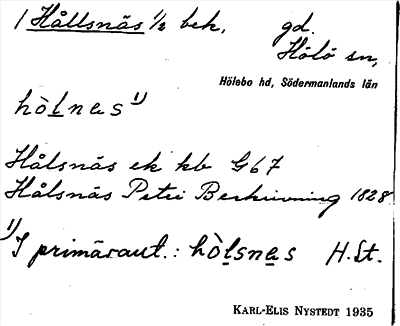 1 Hållsnäs ½ beh, gd.
Hölö sn,
Hölebo hd, Södermanlands län
hòḷnas 1)
Hålsnäs ek kb G67
Hålsnäs Petri Beskrivning 1828
1) I primäraut.: hòḷsnas H.St.
KARL-ELIS NYSTEDT 1935